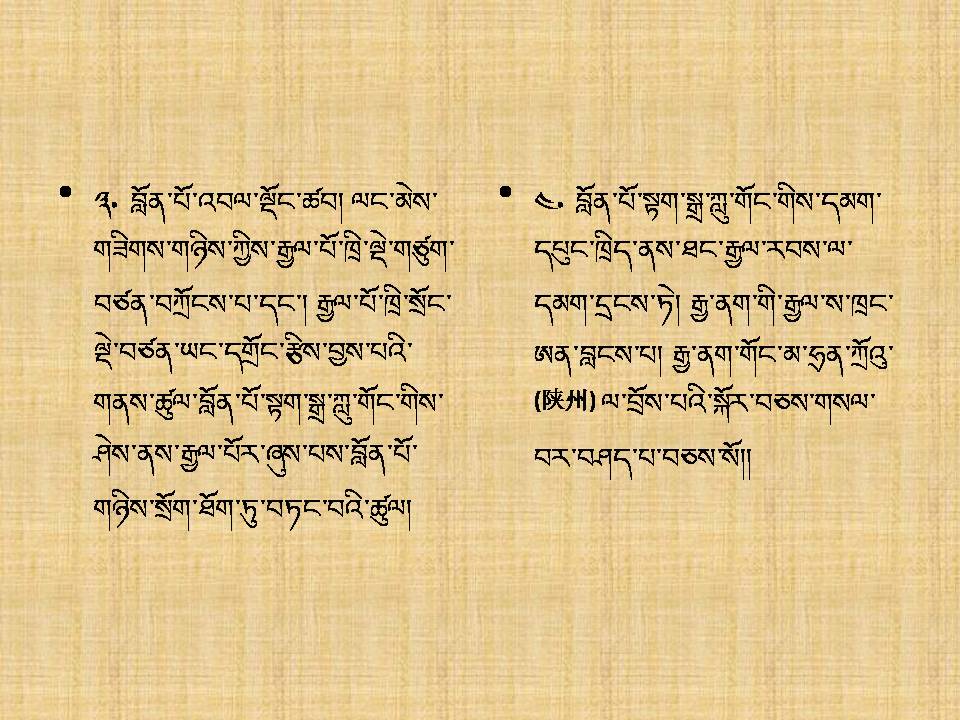 • ༣. བློན་པོ་འབལ་ལྡོང་ཚབ། ལང་མེས་
གཟིགས་གཉིས་ཀྱིས་རྒྱལ་པོ་ཁྲི་ལྡེ་གཙུག་
བཙན་བཀྲོངས་པ་དང་། རྒྱལ་པོ་ཁྲི་སྲོང་
ལྡེ་བཙན་ཡང་དགྲོང་རྩིས་བྱས་པའི་
གནས་ཚུལ་བློན་པོ་སྟག་སྒྲ་ཀླུ་གོང་གིས་
ཤེས་ནས་རྒྱལ་པོར་ཞུས་པས་བློན་པོ་
གཉིས་སྲོག་ཐོག་ཏུ་བཏང་བའི་ཚུལ།
• ༤. བློན་པོ་སྟག་སྒྲ་ཀླུ་གོང་གིས་དམག་
དཔུང་ཁྲིད་ནས་ཐང་རྒྱལ་རབས་ལ་
དམག་དྲངས་ཏེ། རྒྱ་ནག་གི་རྒྱལ་ས་ཁྲང་
ཨན་བླངས་པ། རྒྱ་ནག་གོང་མ་ཧྲན་ཀྲོའུ་
(陕州) ལ་བྲོས་པའི་སྐོར་བཅས་གསལ་
བར་བཤད་པ་བཅས་སོ།།